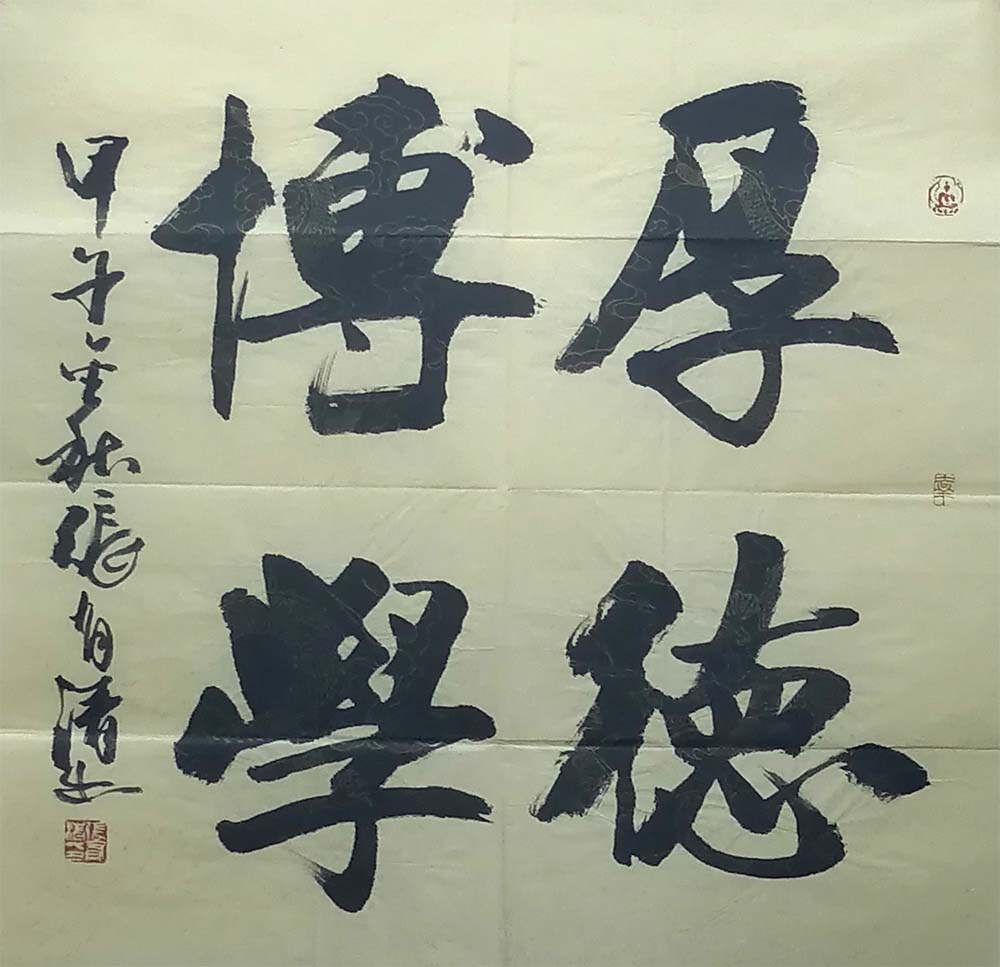 厚德
博學
甲午金秋張有清書